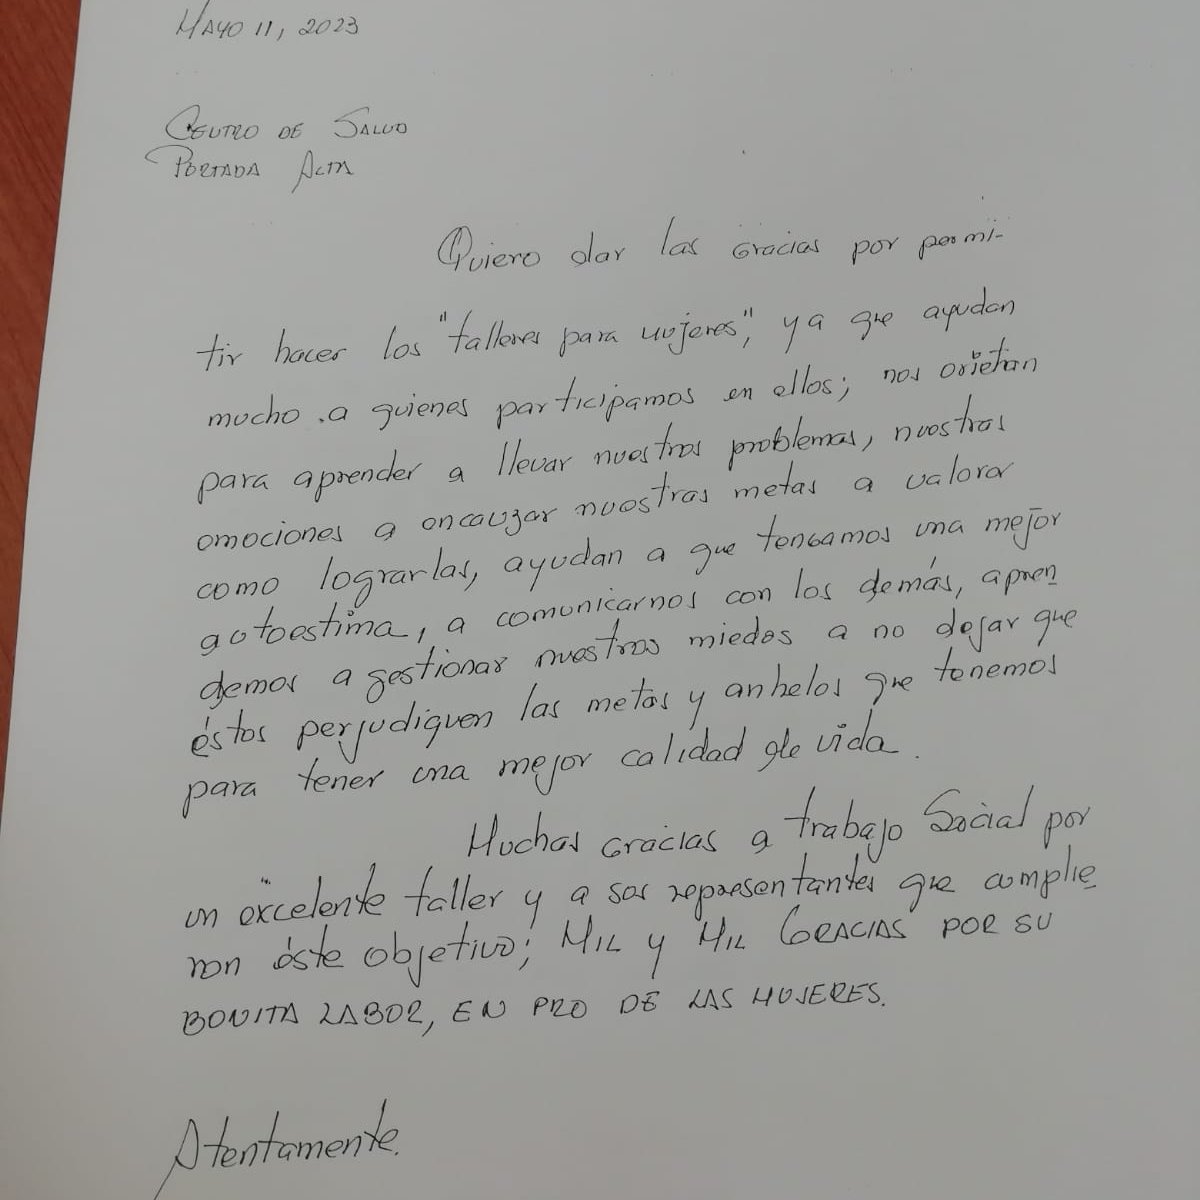 MAYO 11, 2023
CENTRO DE SALUD
PORTADA ALTA
Quiero dar las Gracias por permi-
tir hacer los "talleres para mujeres", ya que ayudan
mucho a quienes participamos en ellos; nos orietan
para aprender a llevar nuestros problemas, nuestras
emociones a encauzar nuestras metas a valorar
como lograrlas, ayudan a que tengamos una mejor
autoestima, a comunicarnos con los demás, apren
demos a gestionar nuestros miedos a no dejar que
éstos perjudiquen las metas y anhelos que tenemos
para tener una mejor calidad de vida.
Muchas Gracias a trabajo Social por
un excelente taller y a sus representantes que cumplie
ron éste objetivo; MIL y MIL GRACIAS POR SU
BONITA LABOR, EN PRO DE LAS MUJERES.
Atentamente.